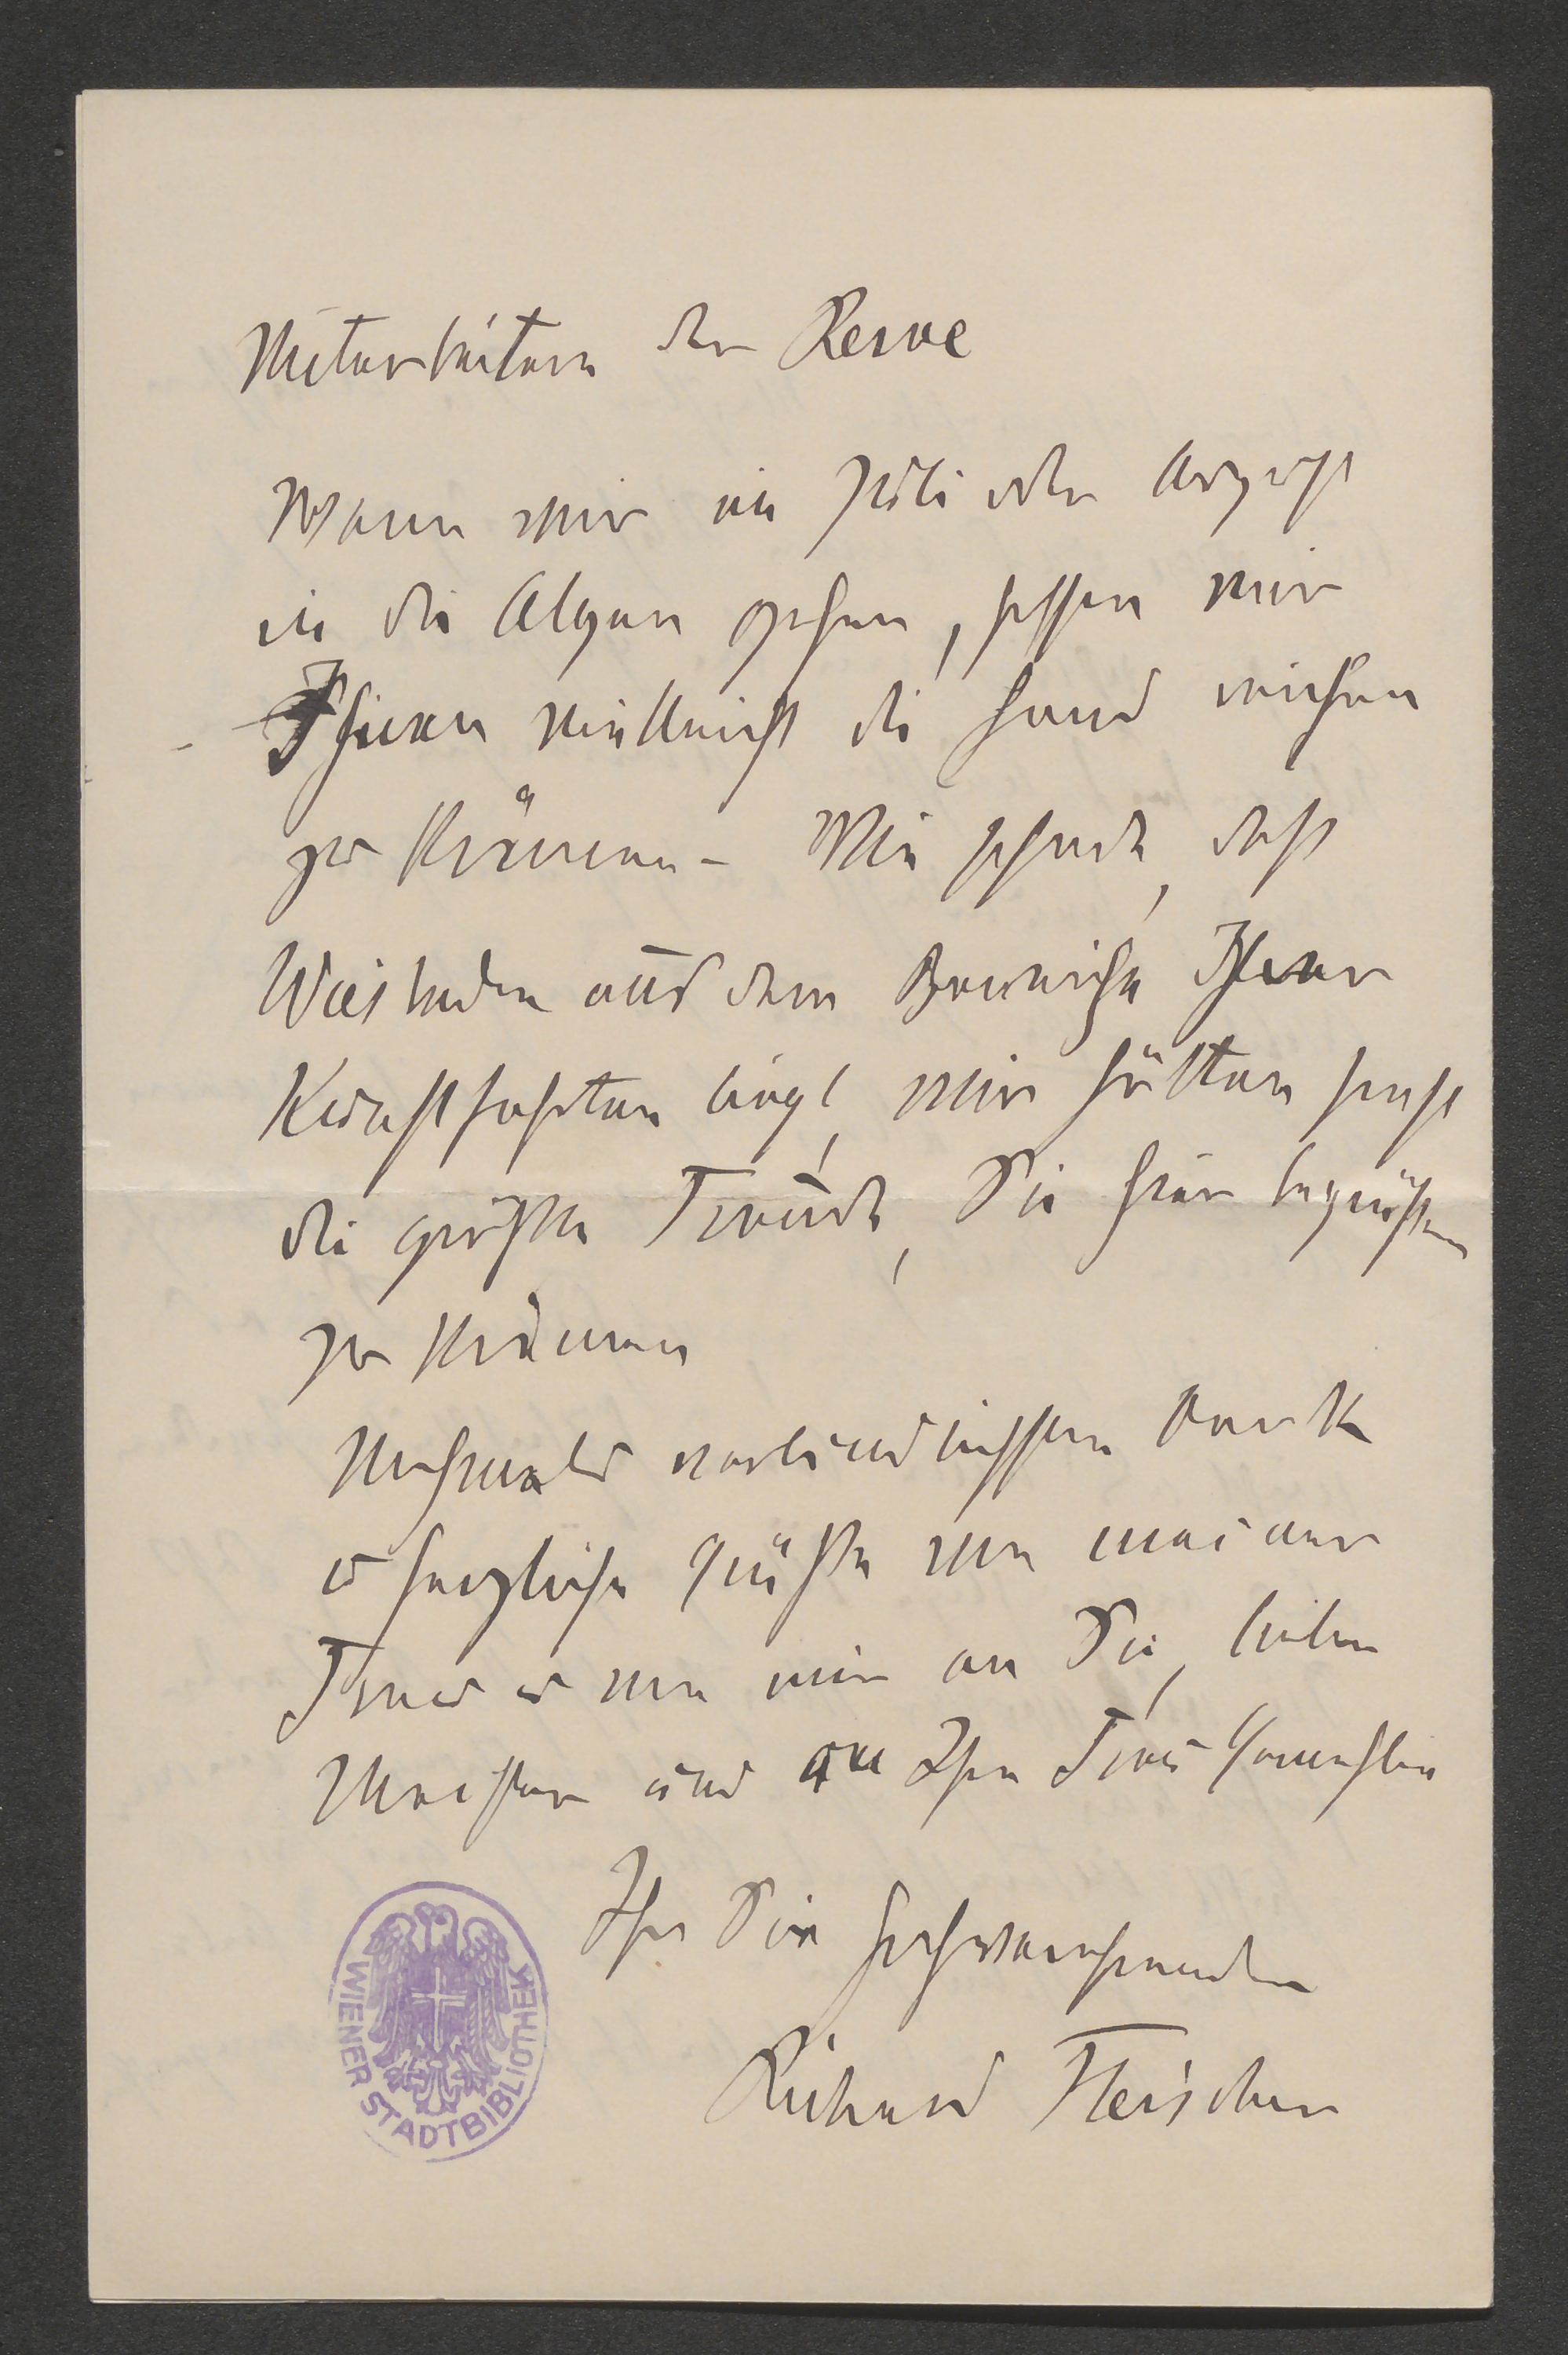 Mitarbeitern der Revue
Wenn wir im Juli oder August
in die Alpen gehen, hoffen wir
Ihnen vielleicht die Hand reichen
zu können – Wie schade, daß
Wiesbaden aus dem Bereiche Ihrer
Kraftfahrten liegt, wir hätten sonst
die größte Freude, Sie hier begrüßen
zu können
Nochmals verbindlichsten Dank
u herzliche Grüße von meiner
Frau u von mir an Sie, lieber
Meister und an Ihre Frau Gemahlin
Ihr Sie hochverehrender
Richard Fleischer
WIENER STADTBIBLIOTHEK